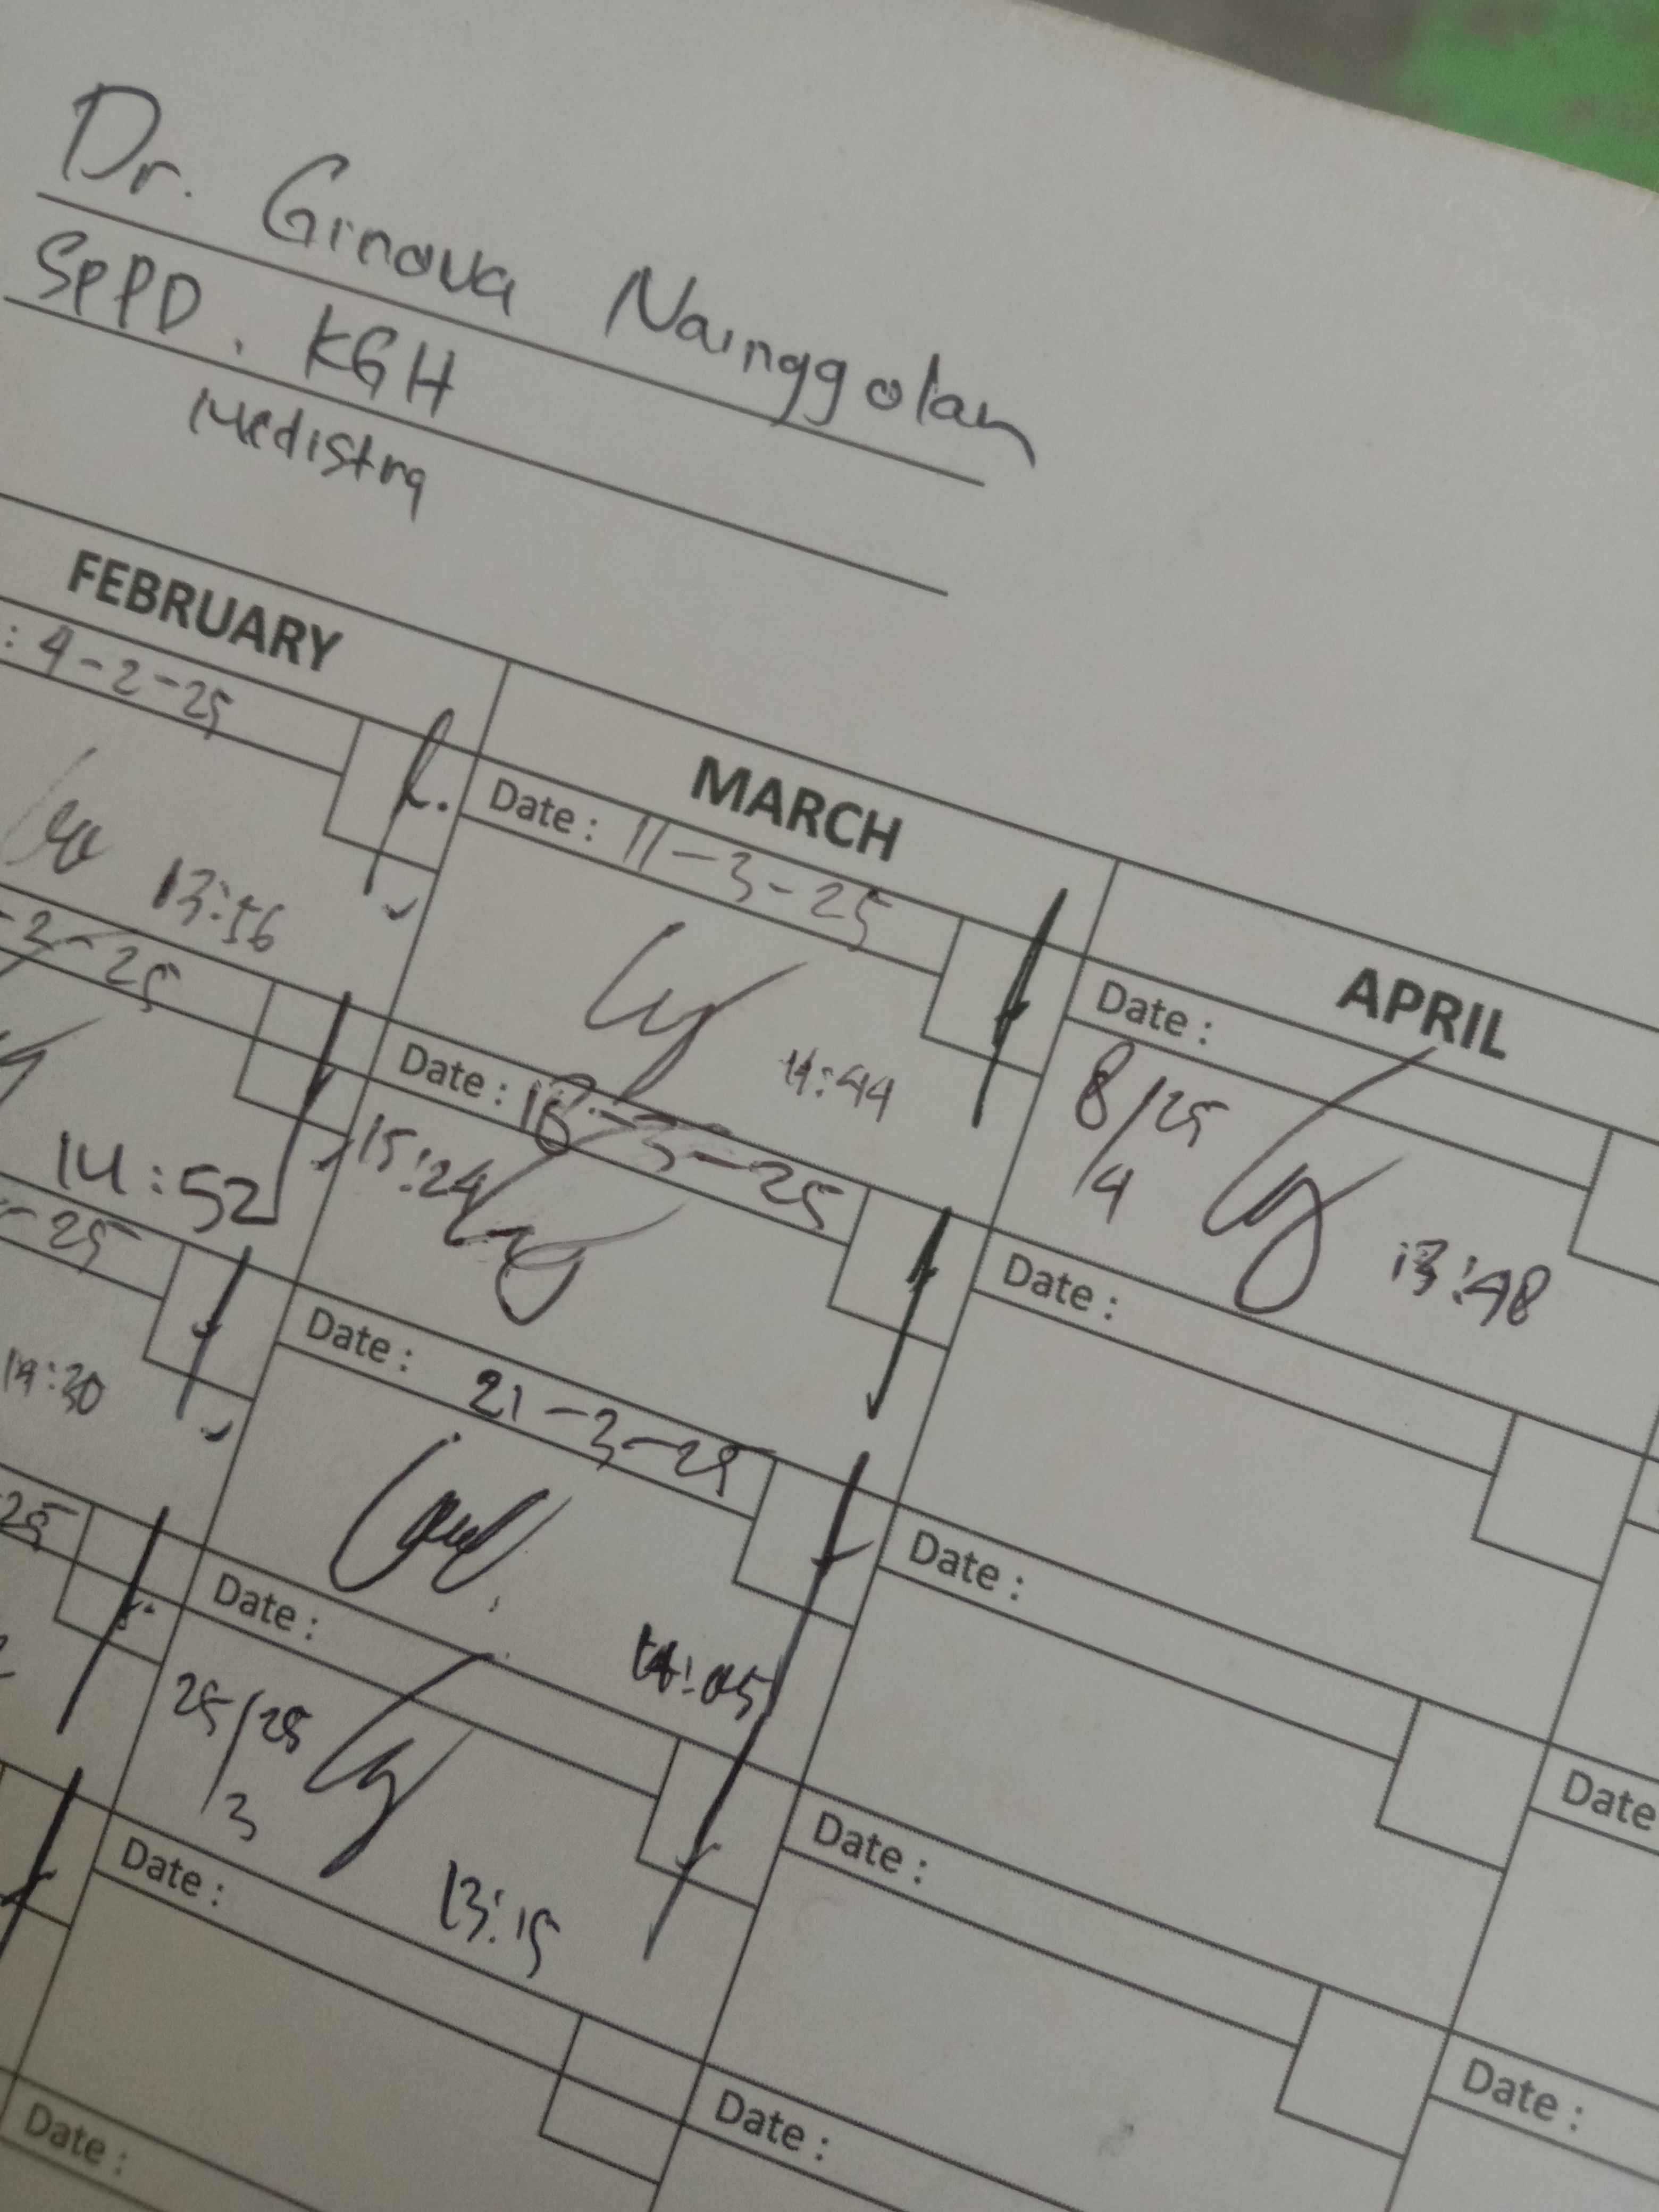 Dr. Ginova Nainggolan
SPPD. KGH
Medistra
FEBRUARY
: 4-2-25
13:56
-2-25
14:52
-25
14:30
25
MARCH
Date : 11-3-25
11:44
Date : 18-3-25
15:24
Date : 21-3-25
14:05
Date :
25/3/25
13:15
Date :
Date :
APRIL
Date :
8/4/25
13:48
Date :
Date :
Date :
Date :
Date
Date :